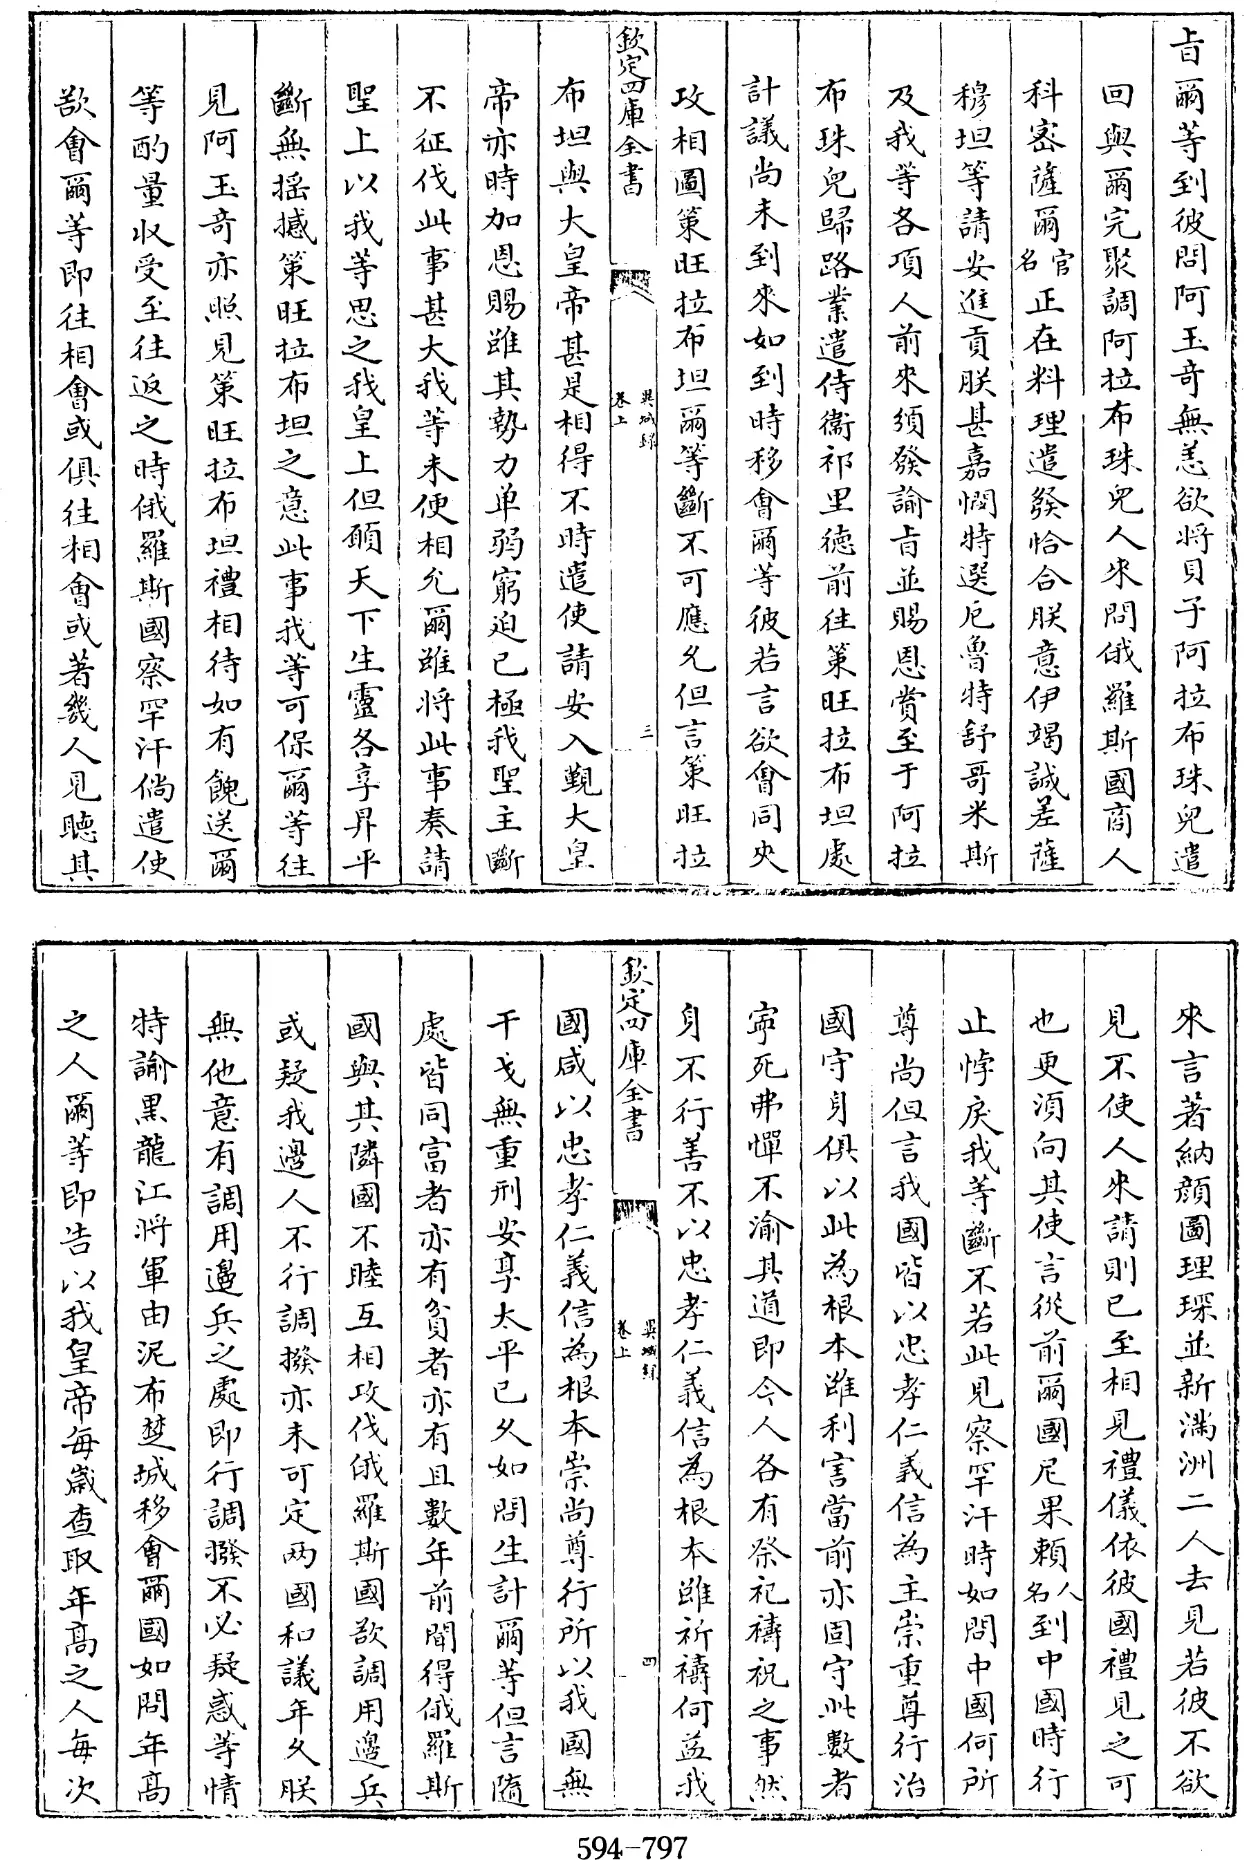 旨爾等到彼問阿玉竒無恙欲將貝子阿拉布珠兒遣
回與爾完聚調阿拉布珠兒人來問俄羅斯國商人
科宻薩爾官名正在料理遣發恰合朕意伊竭誠差薩
穆坦等請安進貢朕甚嘉憫特選厄魯特舒哥米斯
及我等各項人前來須發諭旨並賜恩賞至于阿拉
布珠兒歸路業遣侍衞祁里德前往策旺拉布坦處
計議尚未到來如到時移會爾等彼若言欲會同夾
攻相圖策旺拉布坦爾等斷不可應允但言策旺拉
欽定四庫全書
異域錄
卷上
三
布坦與大皇帝甚是相得不時遣使請安入覲大皇
帝亦時加恩賜雖其勢力单弱窮迫已極我聖主斷
不征伐此事甚大我等未便相允爾雖將此事奏請
聖上以我等思之我皇上但願天下生靈各享昇平
斷無揺撼策旺拉布坦之意此事我等可保爾等往
見阿玉竒亦照見策旺拉布坦禮相待如有餽送爾
等酌量收受至往返之時俄羅斯國察罕汗倘遣使
欲會爾等即往相會或俱往相會或著幾人見聴其
來言著納顔圖理琛並新滿洲二人去見若彼不欲
見不使人來請則已至相見禮儀依彼國禮見之可
也更須向其使言從前爾國尼果頼人名到中國時行
止悖戾我等斷不若此見察罕汗時如問中國何所
尊尚但言我國皆以忠孝仁義信為主崇重尊行治
國守身俱以此為根本雖利害當前亦固守此數者
寧死弗憚不渝其道即今人各有祭祀禱祝之事然
身不行善不以忠孝仁義信為根本雖祈禱何益我
欽定四庫全書
異域錄
卷上
四
國咸以忠孝仁義信為根本崇尚尊行所以我國無
干戈無重刑安享太平已乆如問生計爾等但言隨
處皆同富者亦有貧者亦有且數年前聞得俄羅斯
國與其隣國不睦互相攻伐俄羅斯國欲調用邊兵
或疑我邊人不行調撥亦未可定兩國和議年乆朕
無他意有調用邊兵之處即行調撥不必疑惑等情
特諭黒龍江將軍由泥布楚城移會爾國如問年髙
之人爾等即告以我皇帝每嵗查取年髙之人每次
594-797